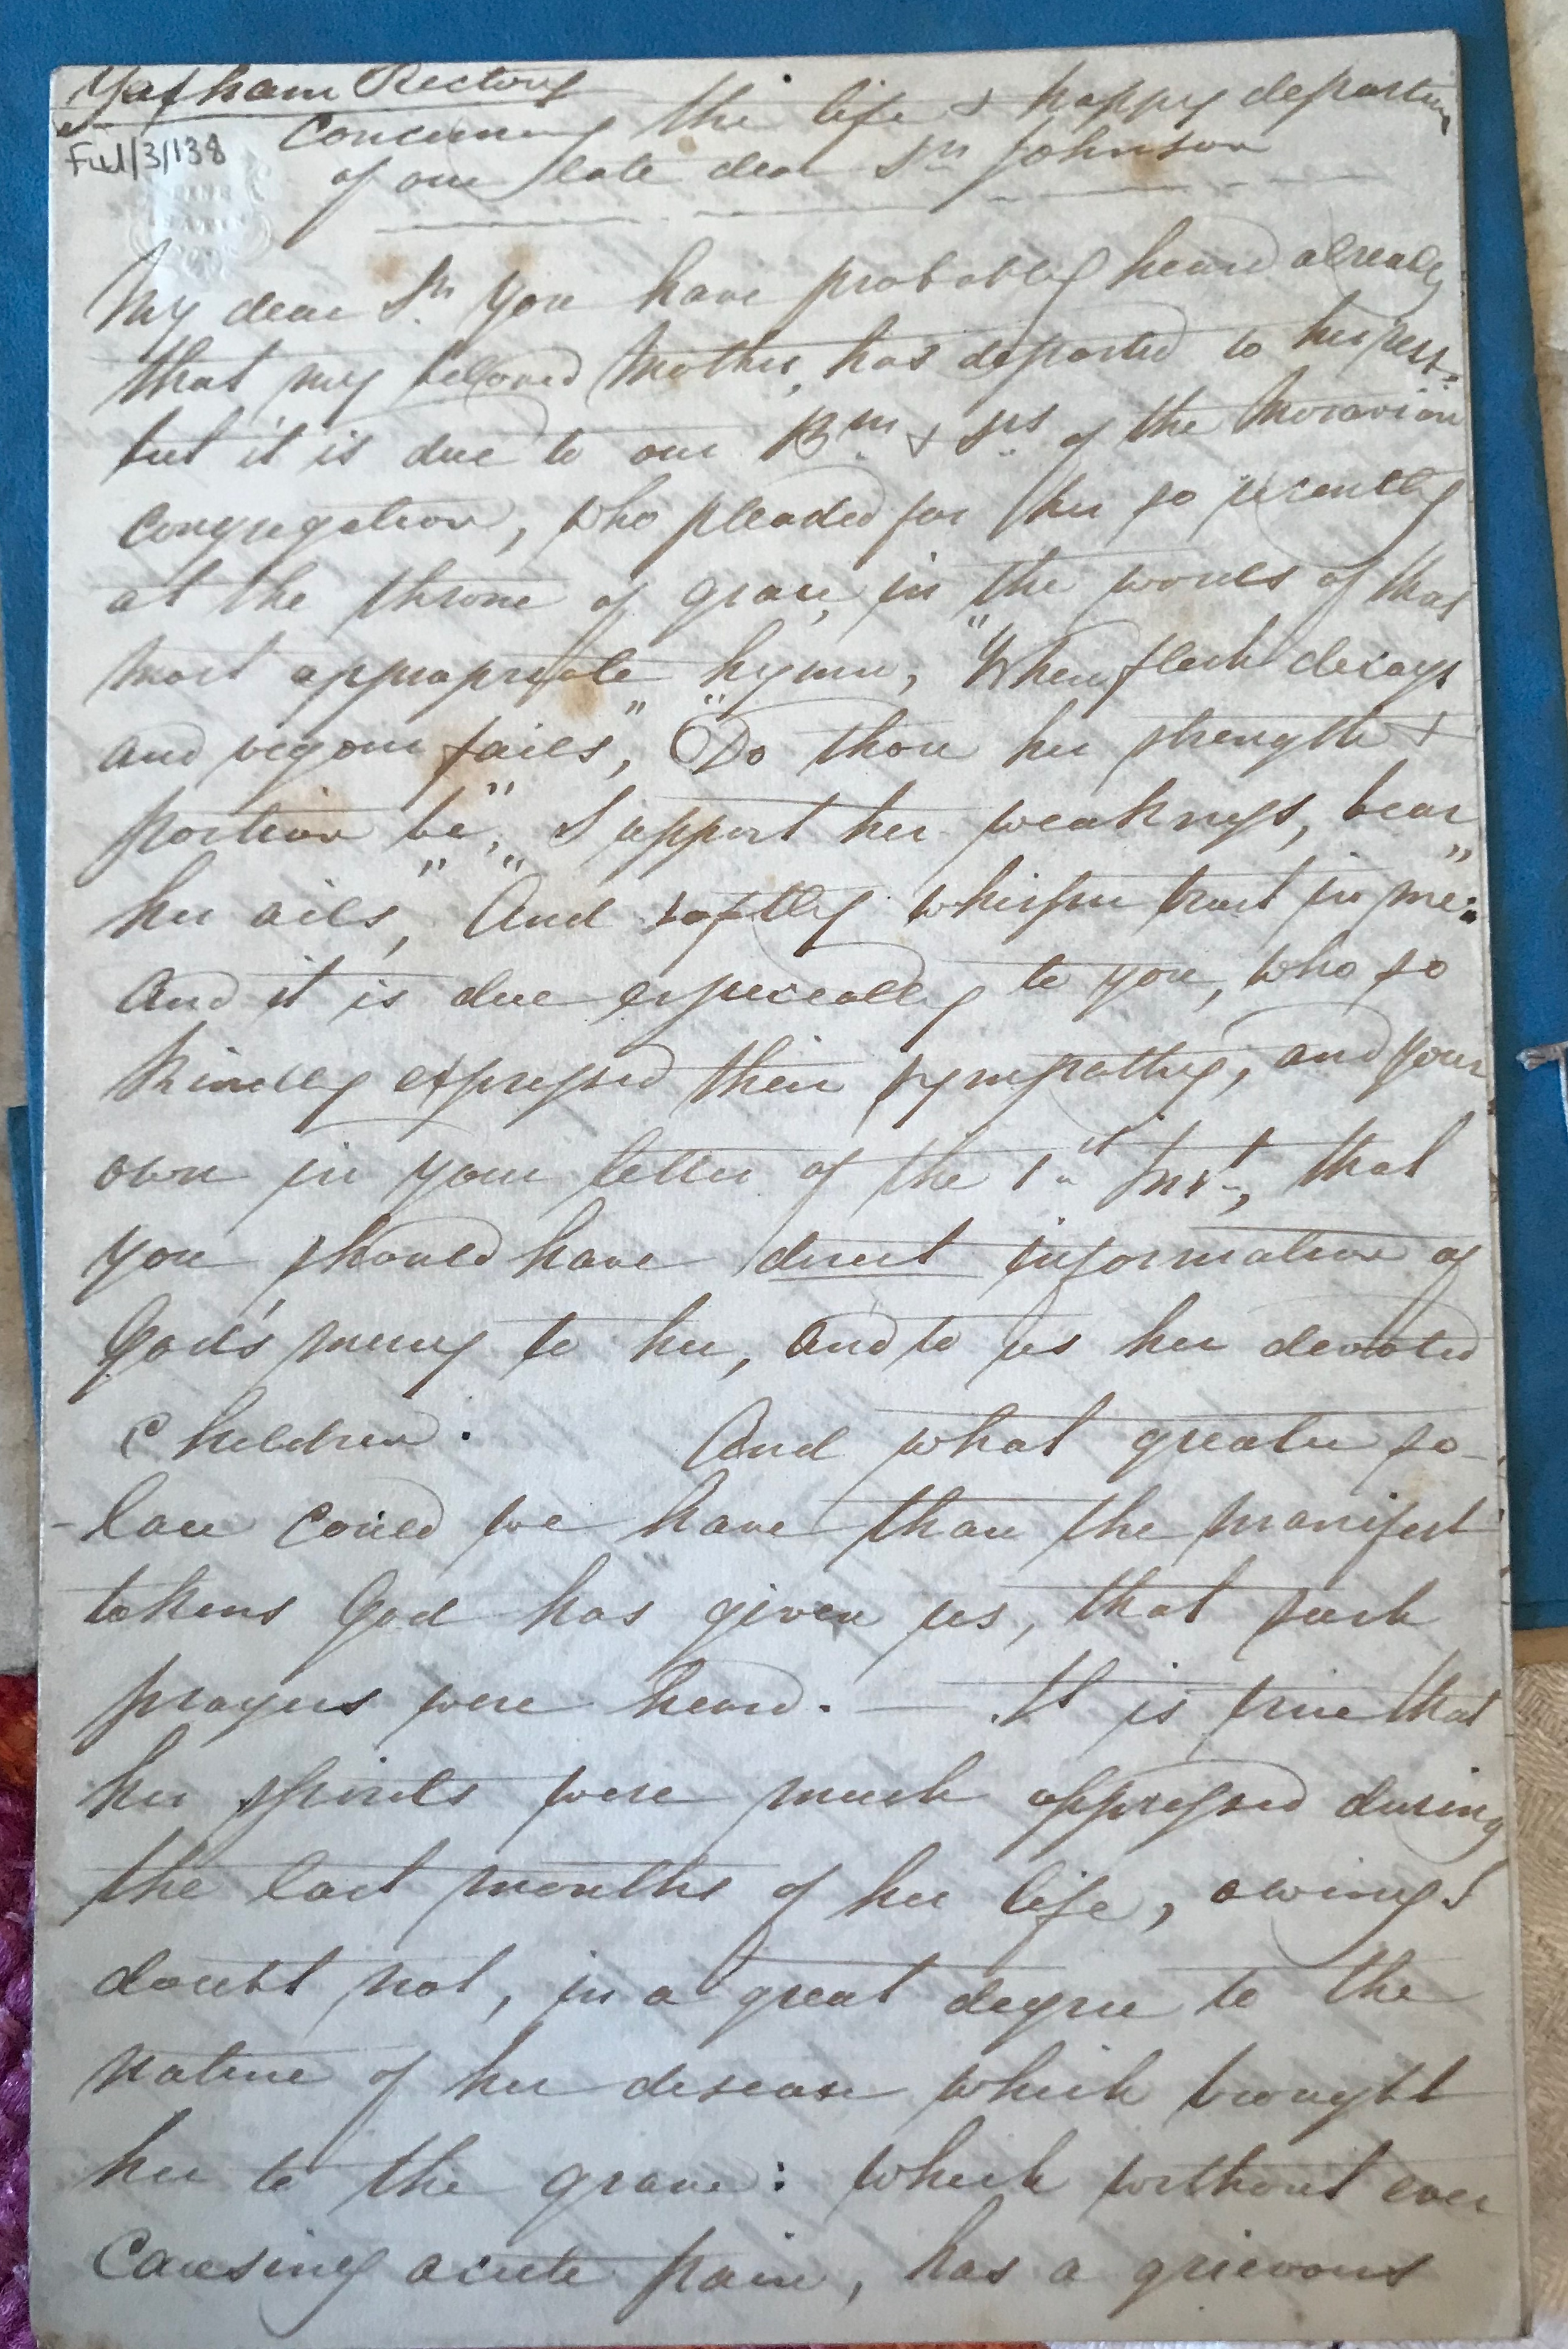 Yaxham Rectory
Concerning the life & happy departure
Ful/3/138
of our late dear Sr. Johnson
My dear Sr. You have probably heard already
that my beloved Mother, has departed to her rest.
but it is due to our Brn. & Srs. of the Moravian
Congregation, who pleaded for her so recently
at the throne of grace, in the words of that
most appropriate hymn, "When flesh decays
and vigour fails", "Do thou her strength &
portion be", Support her weakness, bear
her ails", "And softly whisper trust in me":
And it is due especially to you, who so
kindly expressed their sympathy, and your
own in your letter of the 1st Inst., that
you should have direct information of
God's mercy to her, and to us her devoted
Children. And what greater so-
-lace could we have than the manifest
tokens God has given us, that such
prayers were heard. — It is true that
her spirits were much oppressed during
the last months of her life, owing I
doubt not, in a great degree to the
nature of her disease which brought
her to the grave: which without ever
Causing acute pain, has a grievous